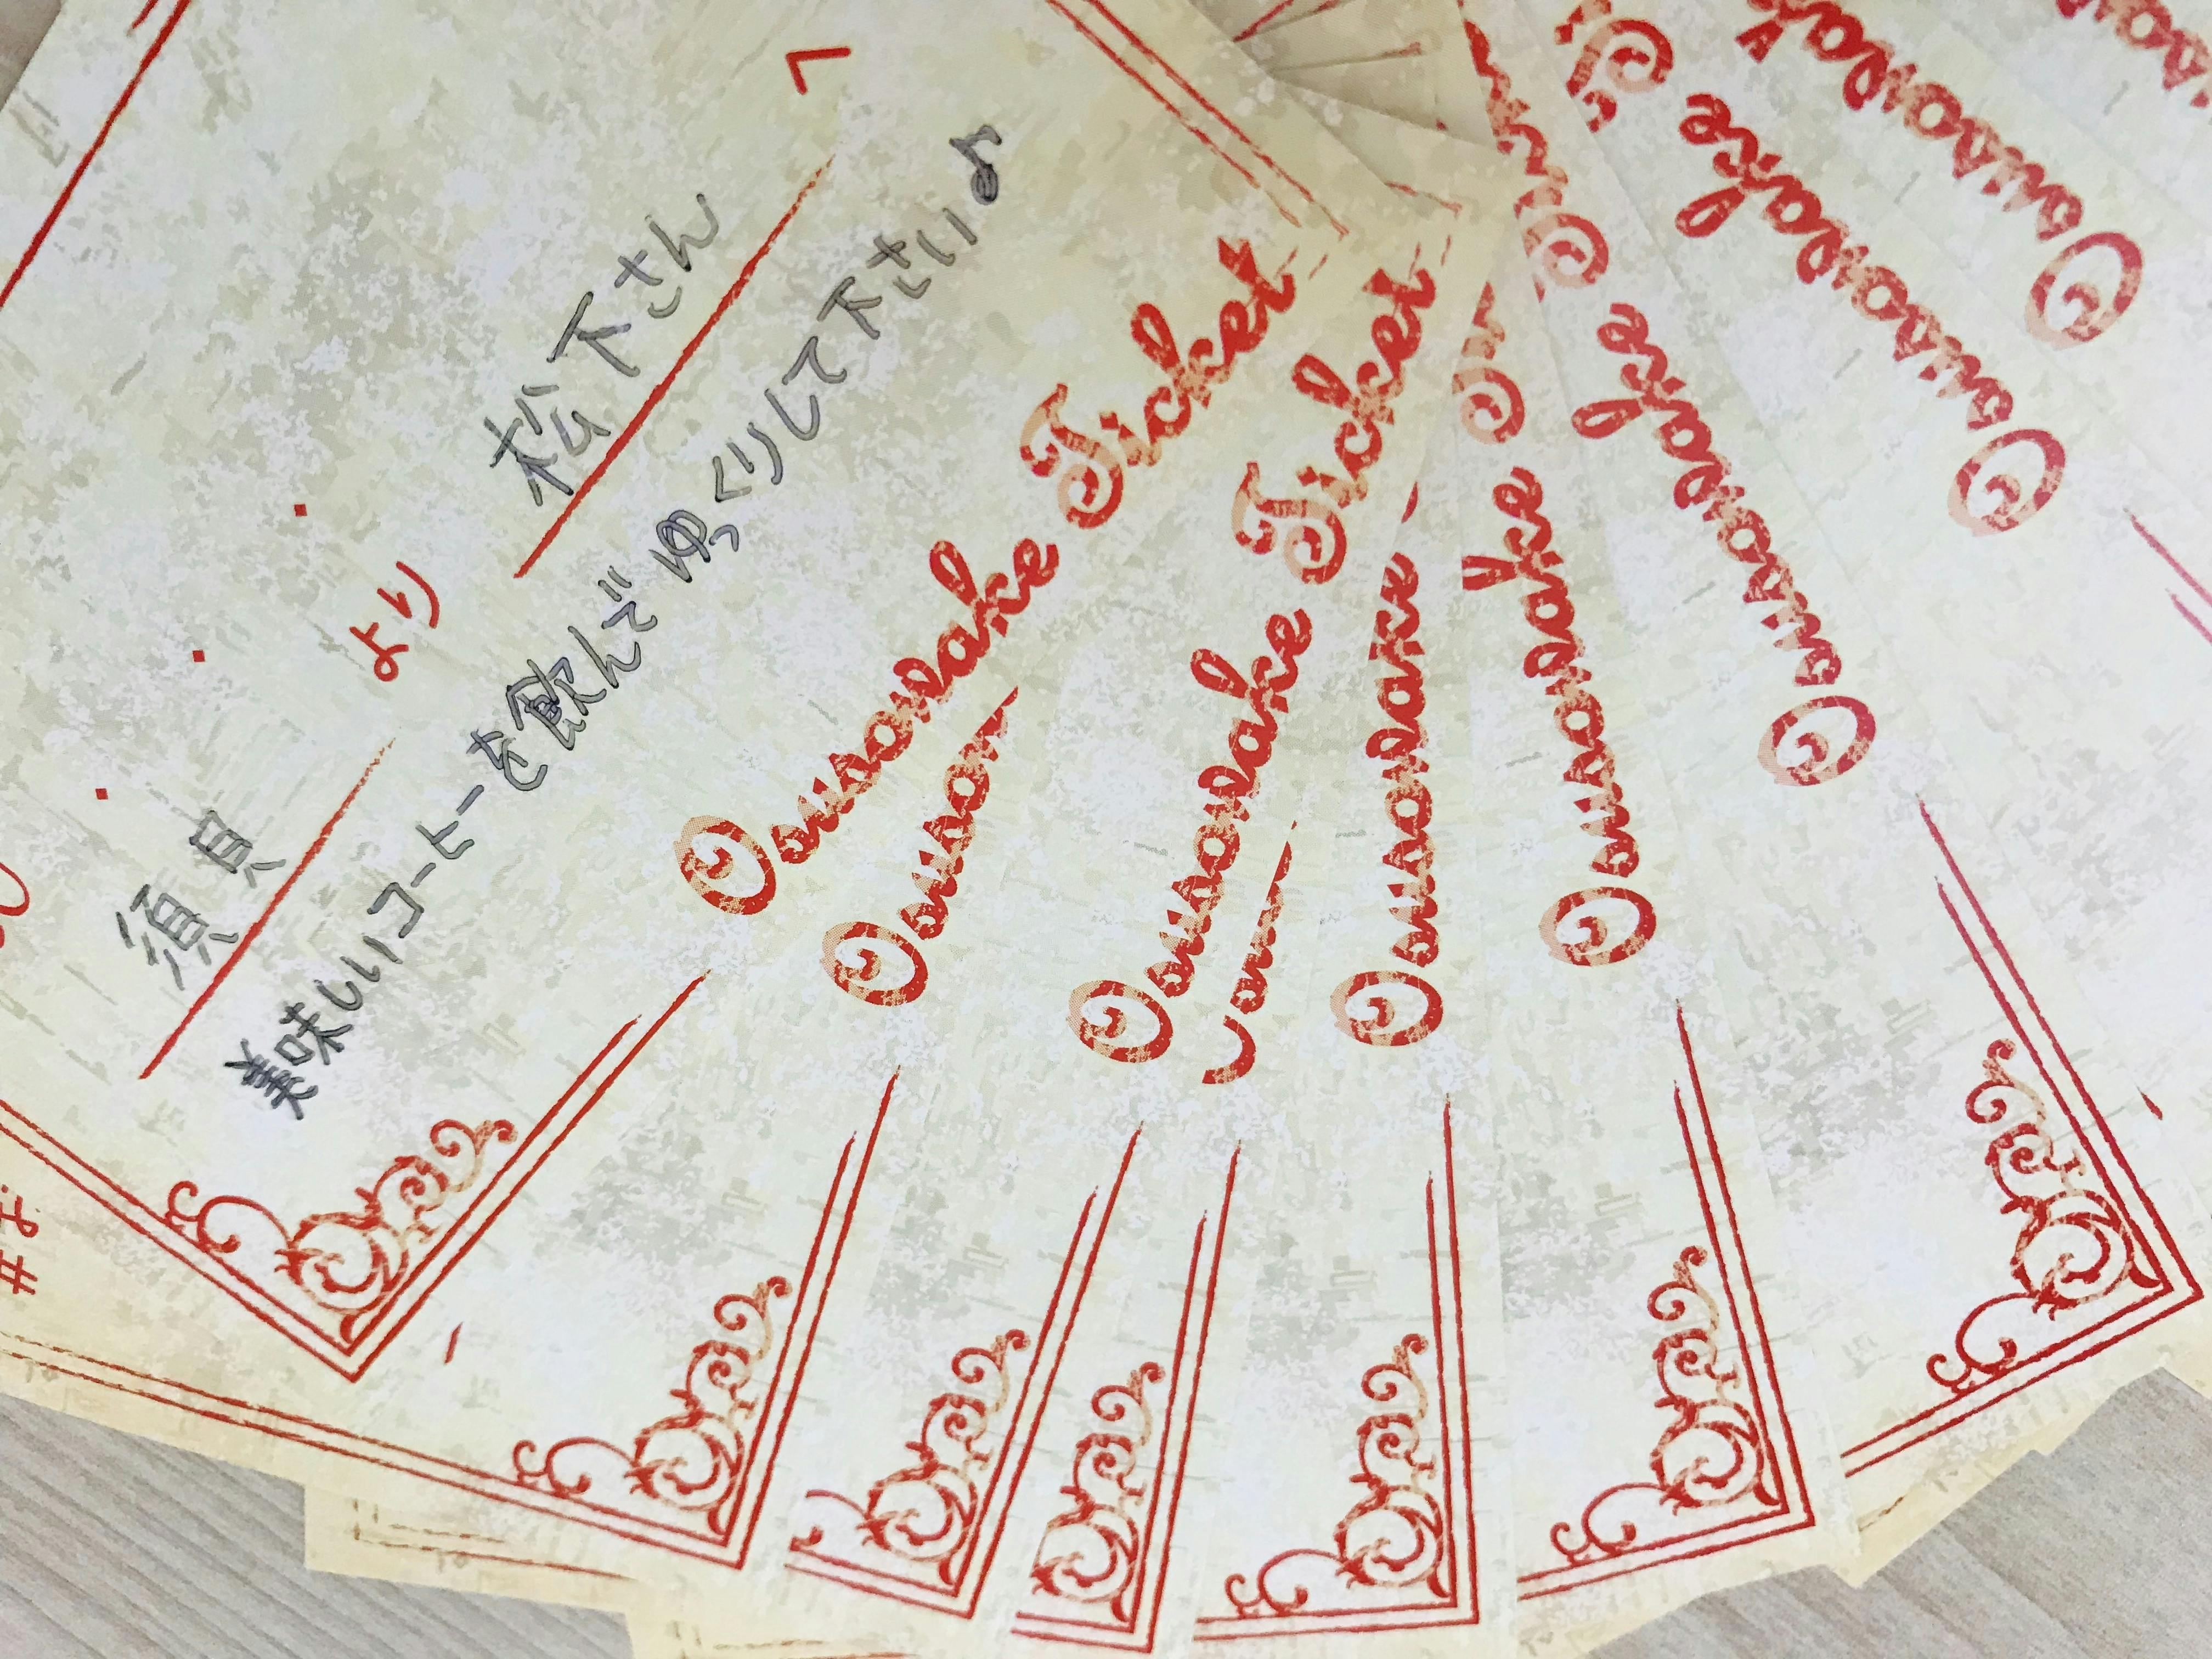 松下さん へ
須貝 より
美味しいコーヒーを飲んでゆっくりして下さいよ
Osusowake Ticket
Osusow
Osusowake Ticket
Osusowake
Osusowake
Osusowake
Osusowake
Osusowak